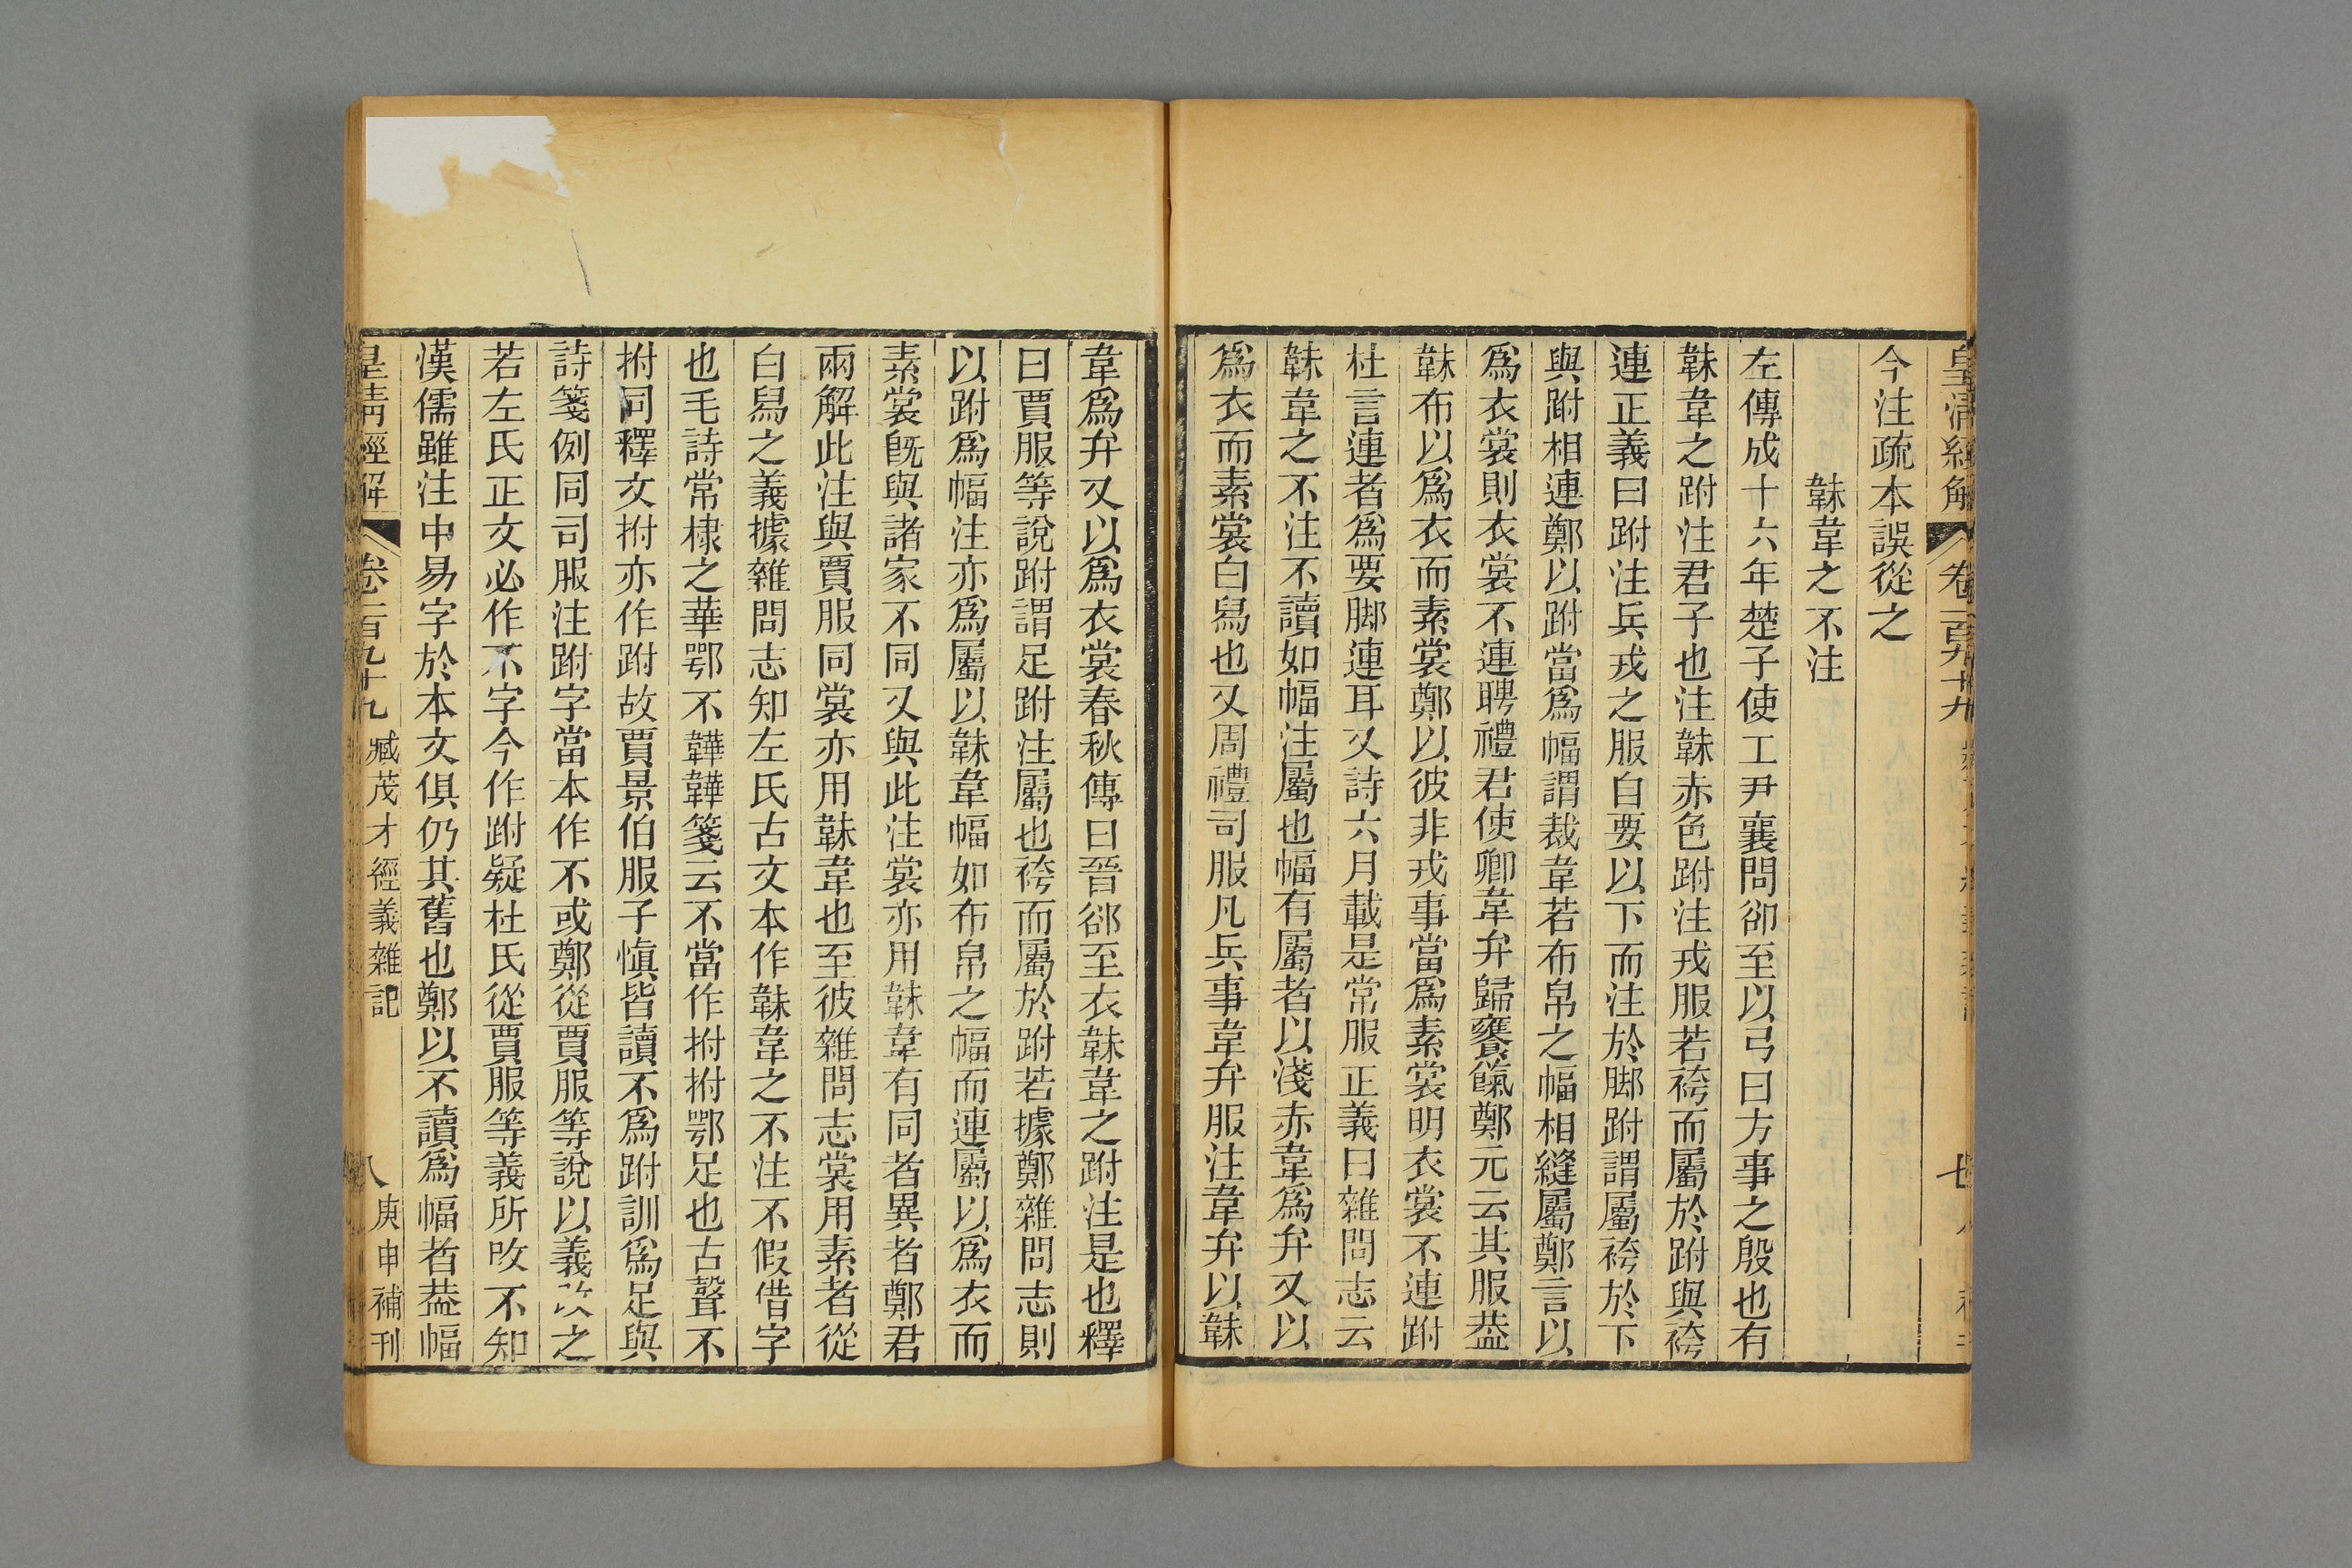 皇清經解 卷一百九十九
今注疏本誤從之
韎韋之不注
左傳成十六年楚子使工尹襄問郤至以弓曰方事之殷也有
韎韋之跗注君子也注韎赤色跗注戎服若袴而屬於跗與袴
連正義曰跗注兵戎之服自要以下而注於脚跗謂屬袴於下
與跗相連鄭以跗當爲幅謂裁韋若布帛之幅相縫屬鄭言以
爲衣裳則衣裳不連聘禮君使卿韋弁歸饔餼鄭元云其服葢
韎布以爲衣而素裳鄭以彼非戎事當爲素裳明衣裳不連跗
杜言連者爲要脚連耳又詩六月載是常服正義曰雜問志云
韎韋之不注不讀如幅注屬也幅有屬者以淺赤韋爲弁又以
爲衣而素裳白舄也又周禮司服凡兵事韋弁服注韋弁以韎
韋爲弁又以爲衣裳春秋傳曰晉郤至衣韎韋之跗注是也釋
曰賈服等說跗謂足跗注屬也袴而屬於跗若據鄭雜問志則
以跗爲幅注亦爲屬以韎韋幅如布帛之幅而連屬以爲衣而
素裳既與諸家不同又與此注裳亦用韎韋有同者異者鄭君
兩解此注與賈服同裳亦用韎韋也至彼雜問志裳用素者從
白舄之義據雜問志知左氏古文本作韎韋之不注不假借字
也毛詩常棣之華鄂不韡韡箋云不當作拊拊鄂足也古聲不
拊同釋文拊亦作跗故賈景伯服子慎皆讀不爲跗訓爲足與
詩箋例同司服注跗字當本作不或鄭從賈服等說以義改之
若左氏正文必作不字今作跗疑杜氏從賈服等義所改不知
漢儒雖注中易字於本文俱仍其舊也鄭以不讀爲幅者葢幅
皇清經解 卷一百九十九 臧茂才經義雜記 八 庚申補刊